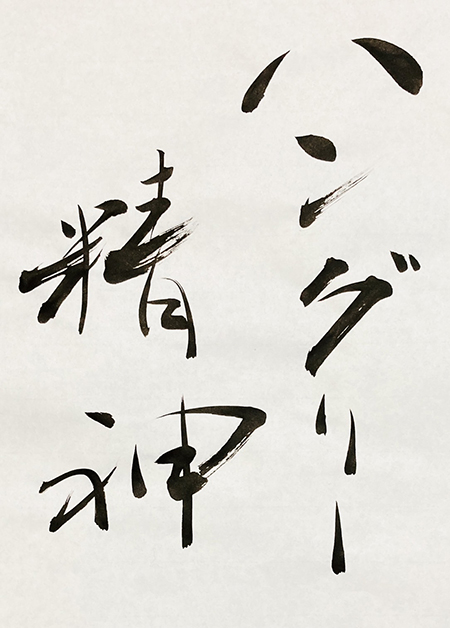 ハングリー
精神